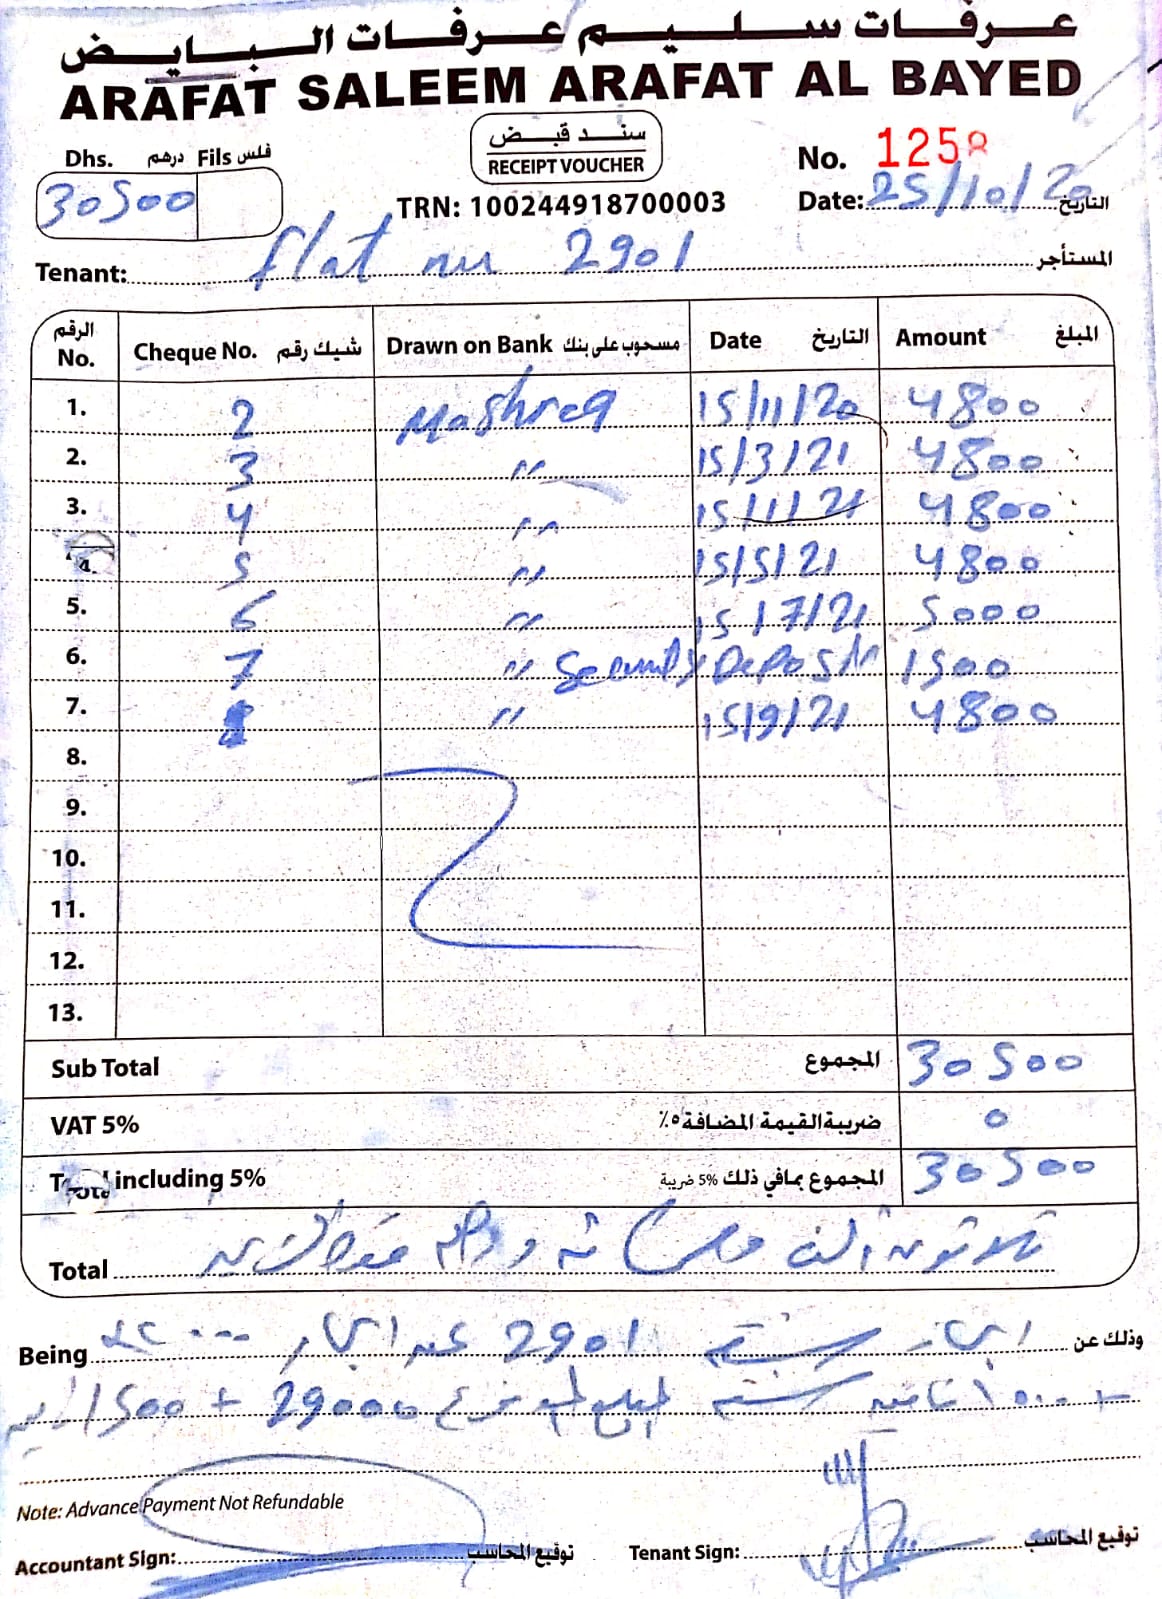 عرفات سليم عرفات البايض
ARAFAT SALEEM ARAFAT AL BAYED
سند قبض
RECEIPT VOUCHER
Dhs. درهم Fils فلس
30500
No. 1258
TRN: 100244918700003
Date: 25/10/20 التاريخ
Tenant: flat nu 2901 المستأجر
الرقم No. Cheque No. شيك رقم Drawn on Bank مسحوب على بنك Date التاريخ Amount المبلغ
1. 2 Mashreq 15/11/20 4800
2. 3 〃 15/3/21 4800
3. 4 〃 15/1/21 4800
4. 5 〃 15/5/21 4800
5. 6 〃 15/7/21 5000
6. 7 〃 Security Deposit 1500
7. 〃 15/9/21 4800
8.
9.
10.
11.
12.
13.
Sub Total المجموع 30500
VAT 5% ضريبة القيمة المضافة ٥٪ 0
Total including 5% المجموع بمافي ذلك 5% ضريبة 30500
Total ثلاثون ألف وخمسمائة درهم فقط لا غير
Being 2901 وذلك عن
29000 + 1500
Note: Advance Payment Not Refundable
Accountant Sign: توقيع المحاسب Tenant Sign: توقيع المحاسب